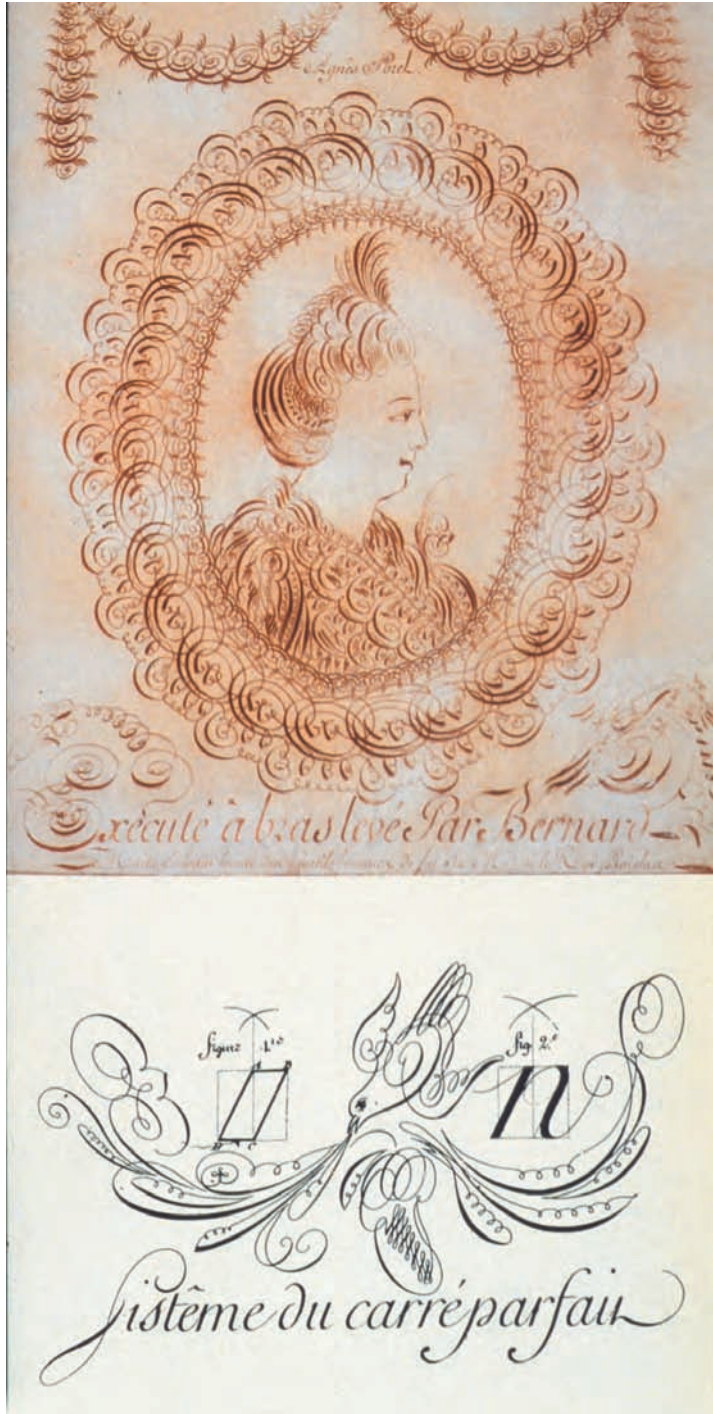 Agnès Sorel.
Exécuté à bras levé Par Bernard
figure 1.re
fig. 2.e
n
Sistême du carré parfait